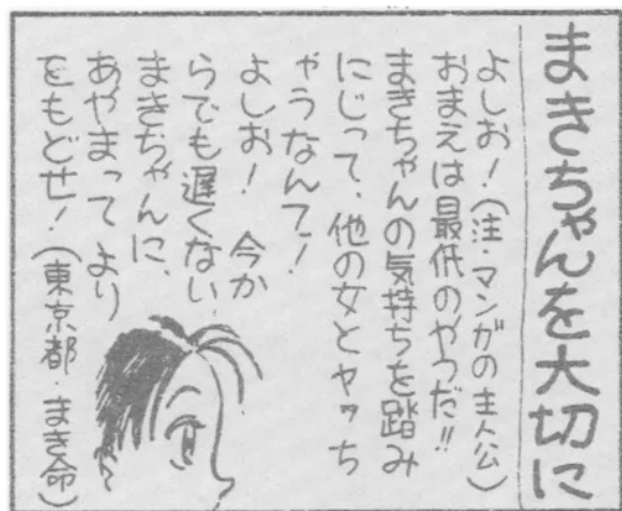 まきちゃんを大切に
よしお！(注・マンガの主人公)
おまえは最低のやつだ!!
まきちゃんの気持ちを踏み
にじって、他の女とヤッち
ゃうなんて！
よしお！　今か
らでも遅くない、
まきちゃんに、
あやまって より
をもどせ！(東京都・まき命)